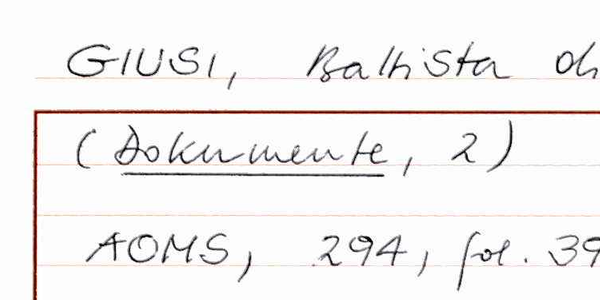 GIUSI, Battista di
(Dokumente, 2)
AOMS, 294, fol. 39